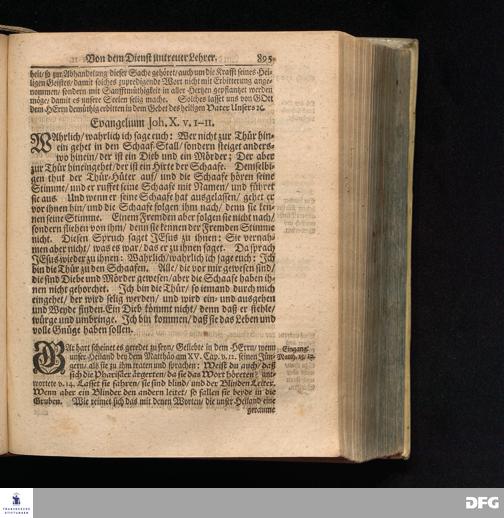 Von dem Dienst untreuer Lehrer. 895
heit/ so zur Abhandelung dieser Sache gehöret/ auch um die Krafft seines Hei-
ligen Geistes/ damit solches zupredigende Wort nicht mit Erbitterung ange-
nommen/ sondern mit Sanfftmüthigkeit in aller Hertzen gepflantzet werden
möge/ damit es unsere Seelen selig mache. Solches lasset uns von GOtt
dem HErrn demüthig erbitten in dem Gebet des heiligen Vater Unsers ꝛc.
Evangelium Joh. X. v. 1-11.
WAhrlich/ wahrlich ich sage euch: Wer nicht zur Thür hin-
ein gehet in den Schaaf-Stall/ sondern steiget anders-
wo hinein/ der ist ein Dieb und ein Mörder; Der aber
zur Thür hineingehet/ der ist ein Hirte der Schaafe. Demselbi-
gen thut der Thür-Hüter auf/ und die Schaafe hören seine
Stimme/ und er ruffet seine Schaafe mit Namen/ und führet
sie aus. Und wenn er seine Schaafe hat ausgelassen/ gehet er
vor ihnen hin/ und die Schaafe folgen ihm nach/ denn sie ken-
nen seine Stimme. Einem Fremden aber folgen sie nicht nach/
sondern fliehen von ihm/ denn sie kennen der Fremden Stimme
nicht. Diesen Spruch sagt JEsus zu ihnen: Sie vernah-
men aber nicht/ was es war/ das er zu ihnen saget. Da sprach
JEsus wieder zu ihnen: Wahrlich/ wahrlich ich sage euch: Jch
bin die Thür zu den Schaafen. Alle/ die vor mir gewesen sind/
die sind Diebe und Mörder gewesen/ aber die Schaafe haben ih-
nen nicht gehorchet. Jch bin die Thür/ so iemand durch mich
eingehet/ der wird selig werden/ und wird ein- und ausgehen
und Weyde finden. Ein Dieb kömmt nicht/ denn daß er stehle/
würge und umbringe. Jch bin kommen/ daß sie das Leben und
volle Gnüge haben sollen.
GAr hart scheinet es geredet zu seyn/ Geliebte in dem HErrn/ wenn
unser Heiland bey dem Matthäo am XV. Cap. v. 12. seinen Jün-
gern/ als sie zu ihm traten und sprachen: Weist du auch/ daß
sich die Pharisäer ärgerten/ da sie das Wort höreten? ant-
wortete v. 14. Lasset sie fahren/ sie sind blind/ und der Blinden Leiter.
Wenn aber ein Blinder den andern leitet/ so fallen sie beyde in die
Gruben. Wie reimet sich das mit denen Worten/ die unser Heiland eine
geraume
Eingang.
Matth. 15/ 12.
FRANCKESCHE
STIFTUNGEN
DFG